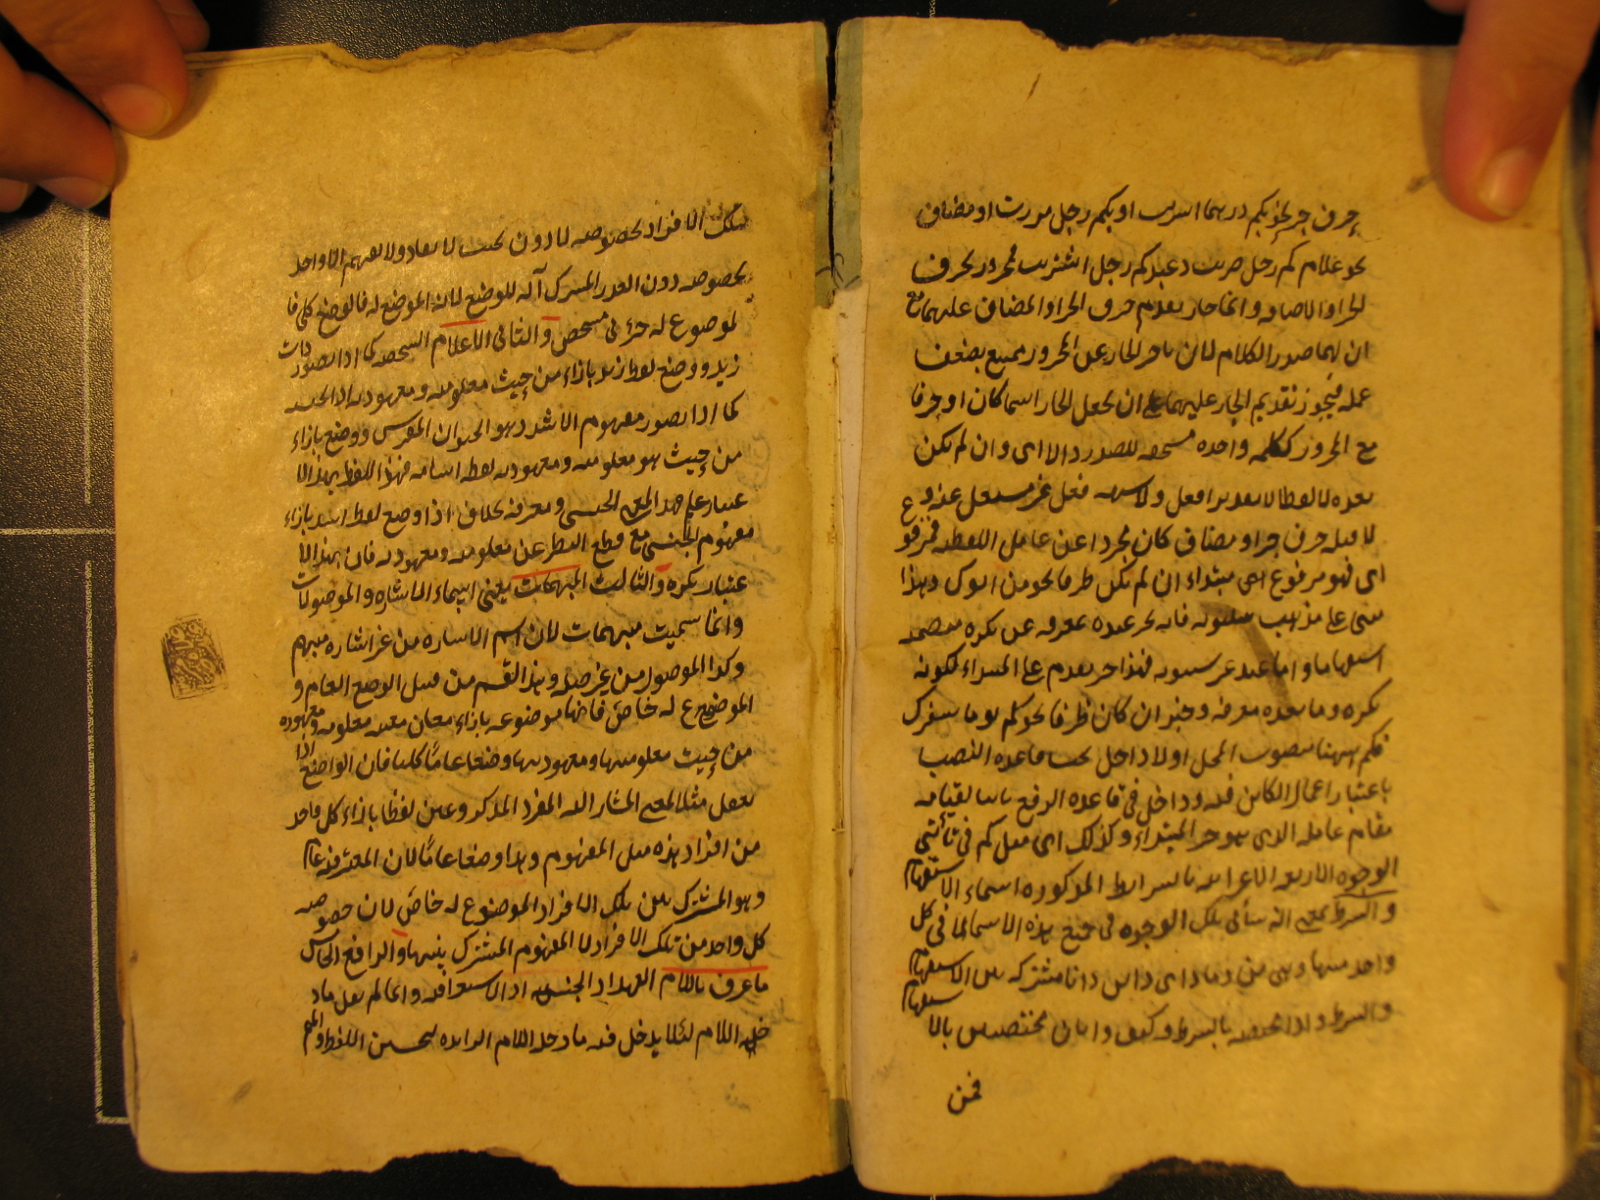 حرف جر نحو بكم درهما اشتريت او بكم رجل مررت او مضاف
نحو غلام كم رجل ضربت وعبد كم رجل اشتريت فمجرور بحرف
الجر او الاضافة وانما جاز تقديم حرف الجر او المضاف عليهما مع
ان لهما صدر الكلام لان تاخر الجار عن المجرور ممتنع لضعف
عمله فيجوز تقديم الجار عليهما على ان يجعل الجار اسما كان او حرفا
مع المجرور ككلمة واحدة مستحقة للصدر والا اى وان لم يكن
بعده لا لفظا ولا تقديرا فعل ولا شبهه فعل غير مشتغل عنه و
لا قبله حرف جر او مضاف كان مجردا عن عامل اللفظية فمرفو ع
اى فهو مرفوع اى مبتداء ان لم يكن ظرفا نحو من ابوك وهذا
مبنى على مذهب سيبويه فانه يخبر عنده بمعرفة عن نكرة متضمنة
استفهاما واما عند غير سيبويه فهذا خبر مقدم على المبتداء لكونه
نكرة وما بعده معرفة وخبر ان كان ظرفا نحو كم يوما سفرك
فكم ههنا منصوب المحل اولا داخل تحت قاعدة النصب
باعتبار اعمال الكائن فيه وداخل فى قاعدة الرفع ثانيا لقيامه
مقام عامله الذى هو خبر المبتداء وكذلك اى مثل كم فى تأتى
الوجوه الاربعة الاعرابية بالشرايط المذكورة اسماء الا ستفهام
والشرط بمعنى انه يتأتى تلك الوجوه فى جميع هذه الاسماء لا فى كل
واحد منها وهى من وما واى واين وانا مشتركة بين الاستفهام
والشرط واذا المختصة بالشرط وكيف وايان مختصتين بالا ستفهام
فمن
تلك الافراد بخصوصه لا دون بحيث لا يفاد ولا يفهم الا واحد
بخصوصه دون القدر المشترك آلة للوضع لا انه الموضوع له فالوضع كلى فا
لموضوع له جزئى مشخص والثانى الاعلام الشخصية كما اذا تصور ذات
زيد ووضع لفظ زيد بازاءه من حيث معلوميته ومعهوديته او الجنسية
كما اذا تصور مفهوم الاسد وهو الحيوان المفترس ووضع بازاء
من حيث هو معلوميته ومعهوديته لفظ اسامة فهذا اللفظ بهذا الا
عتبار علم لهذا المعنى الجنسى ومعرفة بخلاف اذا وضع لفظ اسد بازاء
مفهوم الجنسى مع قطع النظر عن معلوميته ومعهوديته فان بهذا الا
عتبار نكرة والثالث المبهمات يعنى اسماء الاشارة والموصولات
وانما سميت مبهمات لان اسم الاشارة من غير اشارة مبهم
وكذا الموصول من غير صلة وهذا القسم من قبيل الوضع العام و
الموضوع له خاص فانها موضوعة بازاء معان معينة معلومة ومعهودة
من حيث معلوميتها ومعهوديتها وضعا عاما كليا فان الواضع اذا
تعقل مثلا معنى المشار اليه المفرد المذكر وعين لفظا بازاء كل واحد
من افراد هذه مثل المفهوم وهذا وضعا عاما لان المعتبر فيه عام
وهو المشترك بين تلك الافراد الموضوع له خاص لان خصوصية
كل واحد من تلك الافراد لا المفهوم المشترك بينها والرابع الخامس
ما عرف باللام العهد او الجنسية او الاستغراقية وانما لم يقل ما د
خله اللام لئلا يدخل فيه ما دخله اللام الزائدة لتحسين اللفظ والمع